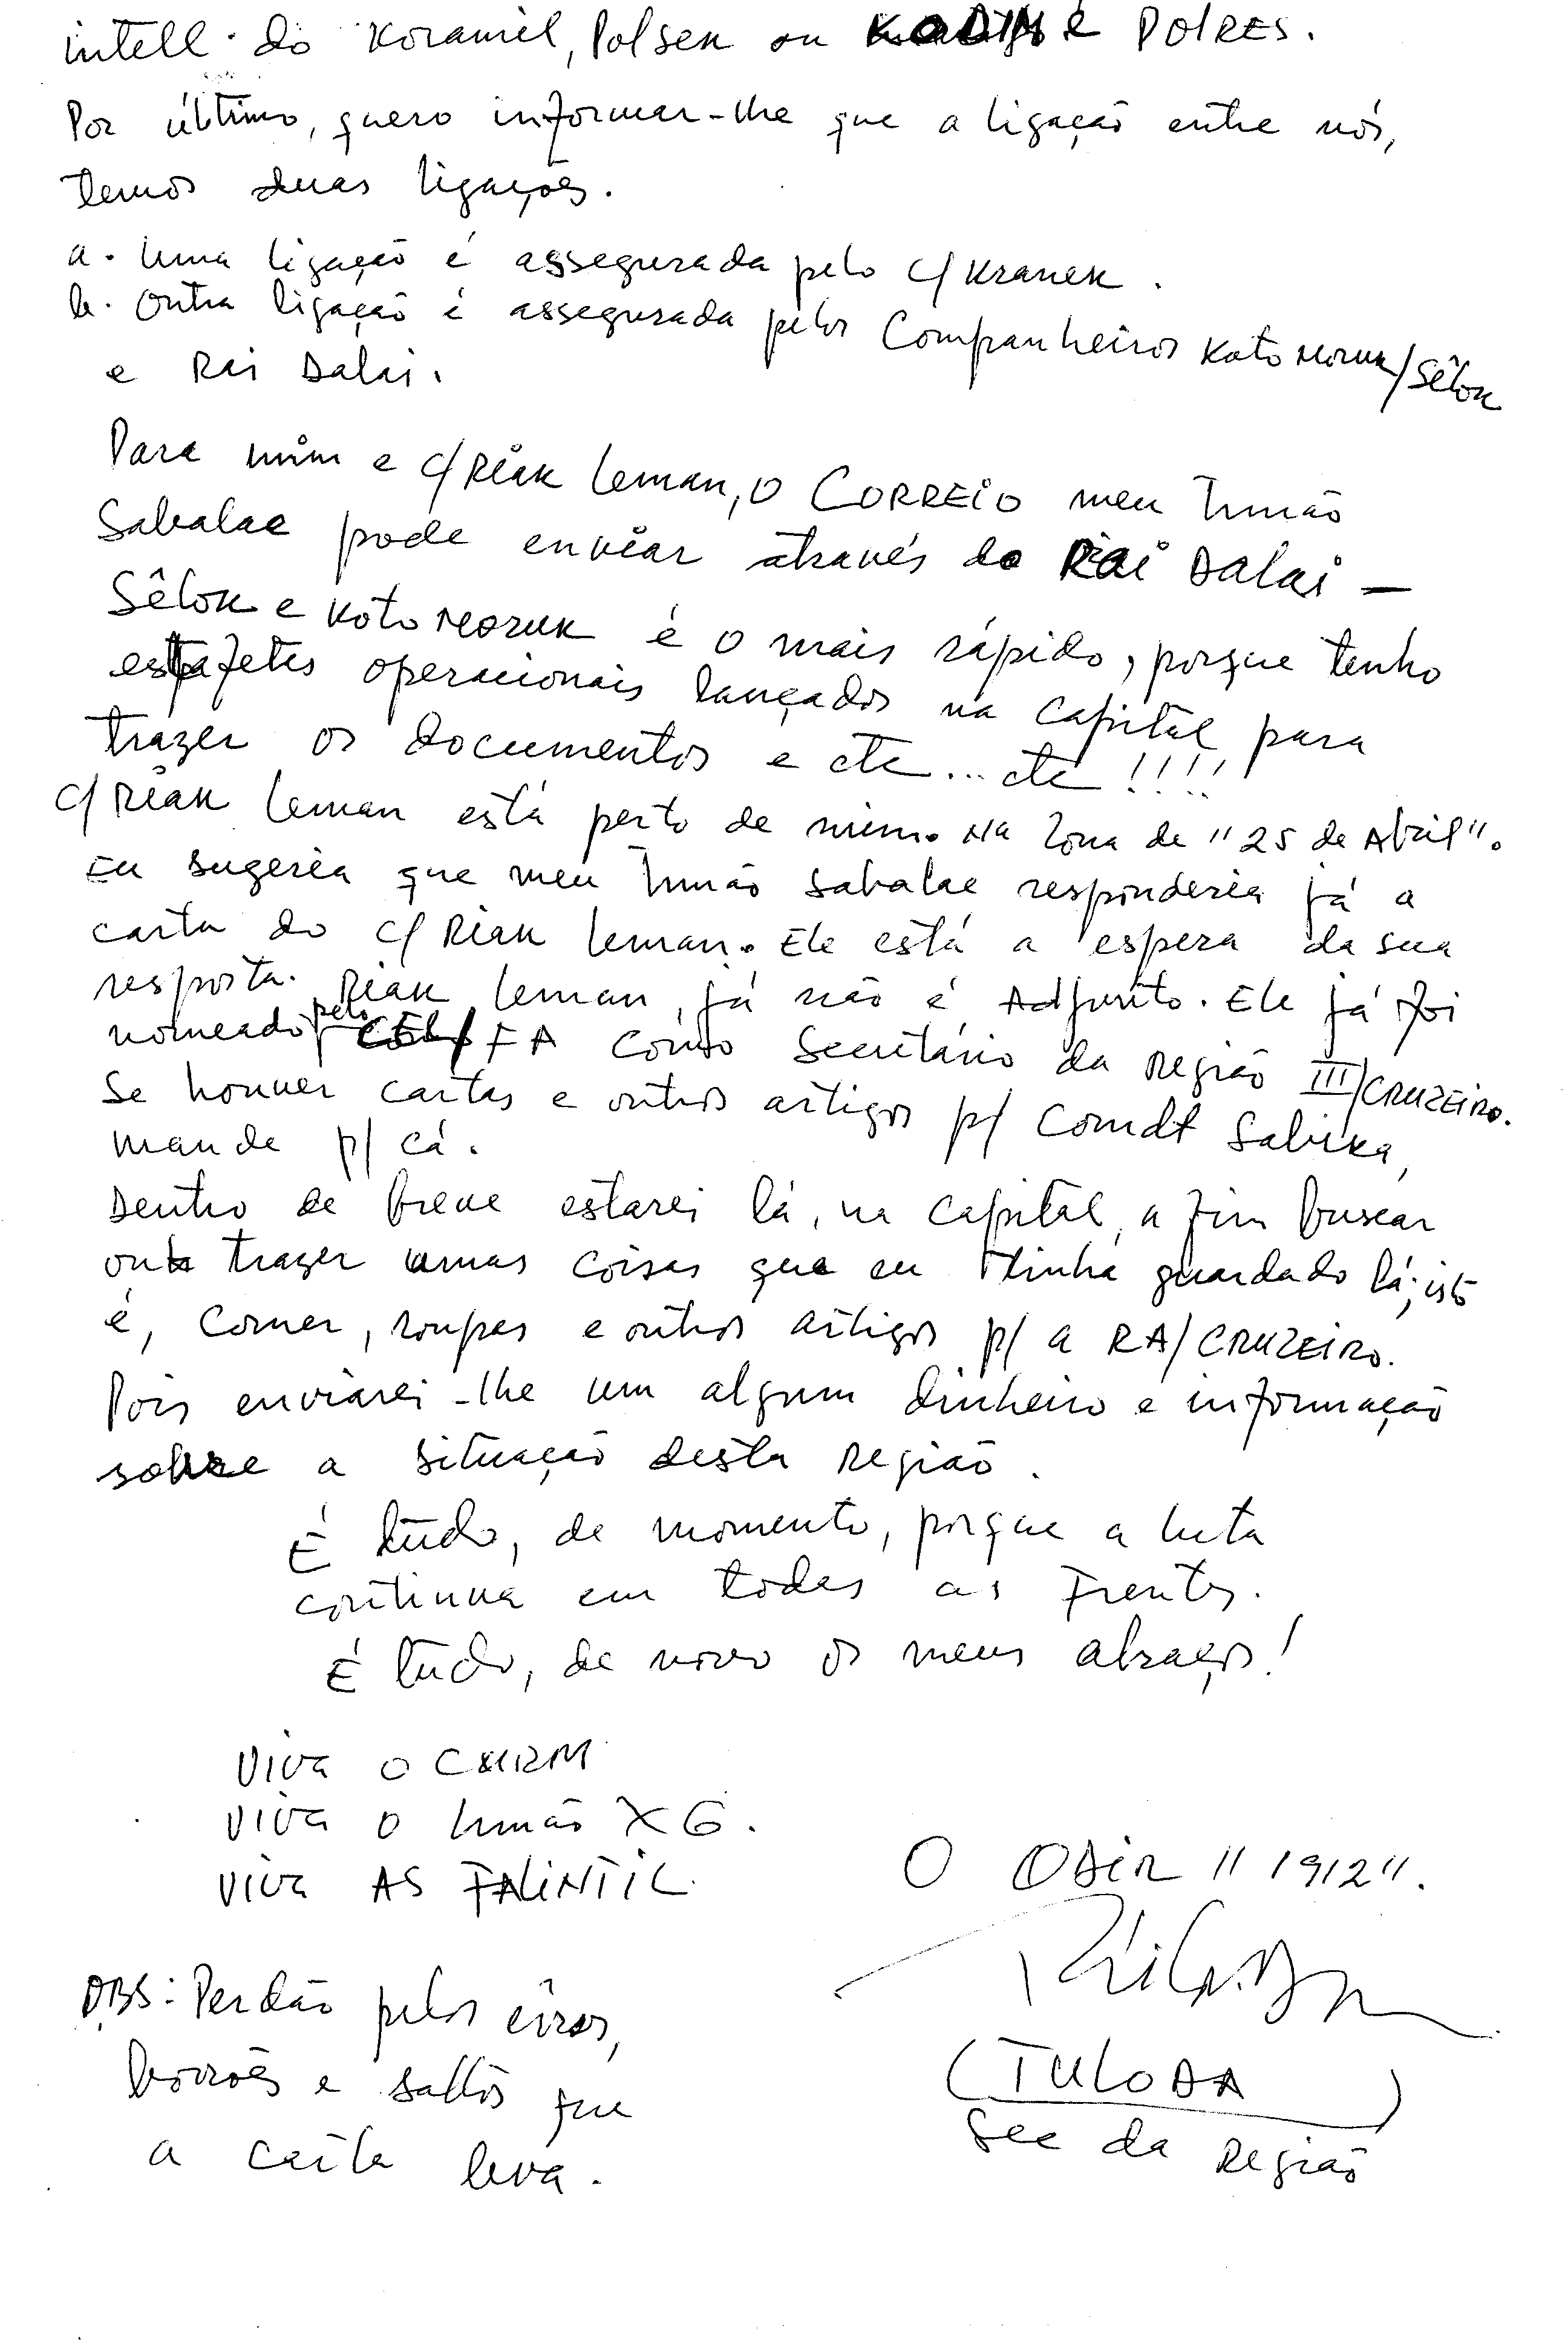 intell. do Koramil, Polsek ou KODIM e POLRES.
Por último, quero informar-lhe que a ligação entre nós,
temos duas ligações.
a. Uma ligação é assegurada pelo c/ Kranek.
b. Outra ligação é assegurada pelos Companheiros Koto Moruk/Sêlok
e Rai Dalai.
Para mim e c/ Riak Leman, o CORREIO meu Irmão
Sabalae pode enviar através do Rai Dalai —
Sêlok e Koto Moruk é o mais rápido, porque tenho
estafetes operacionais lançados na capital para
trazer os documentos e etc... etc!!!!
c/ Riak Leman está perto de mim. Na Zona de "25 de Abril".
Eu sugeria que meu Irmão Sabalae responderia já a
carta do c/ Riak Leman. Ele está a espera da sua
resposta. Riak Leman, já não é Adjunto. Ele já foi
nomeado pelo CEL/FA como Secretário da Região III/CRUZEIRO.
Se houver cartas e outros artigos p/ Comdt Sabika,
mande p/ cá.
Dentro de breve estarei lá, na capital, a fim buscar
ou trazer umas coisas que eu tinha guardado lá; istó
é, comer, roupas e outros artigos p/ a RA/CRUZEIRO.
Pois enviarei-lhe um algum dinheiro e informação
sobre a situação desta Região.
É tudo, de momento, porque a luta
continua em todas as Frentes.
É tudo, de novo os meus abraços!
Viva o CNRM
Viva o Irmão XG.
Viva AS FALINTIL
O ODIR "1912".
(TULODA)
Sec da Região
OBS: Perdão pelos êrros,
borrões e saltos que
a carta leva.